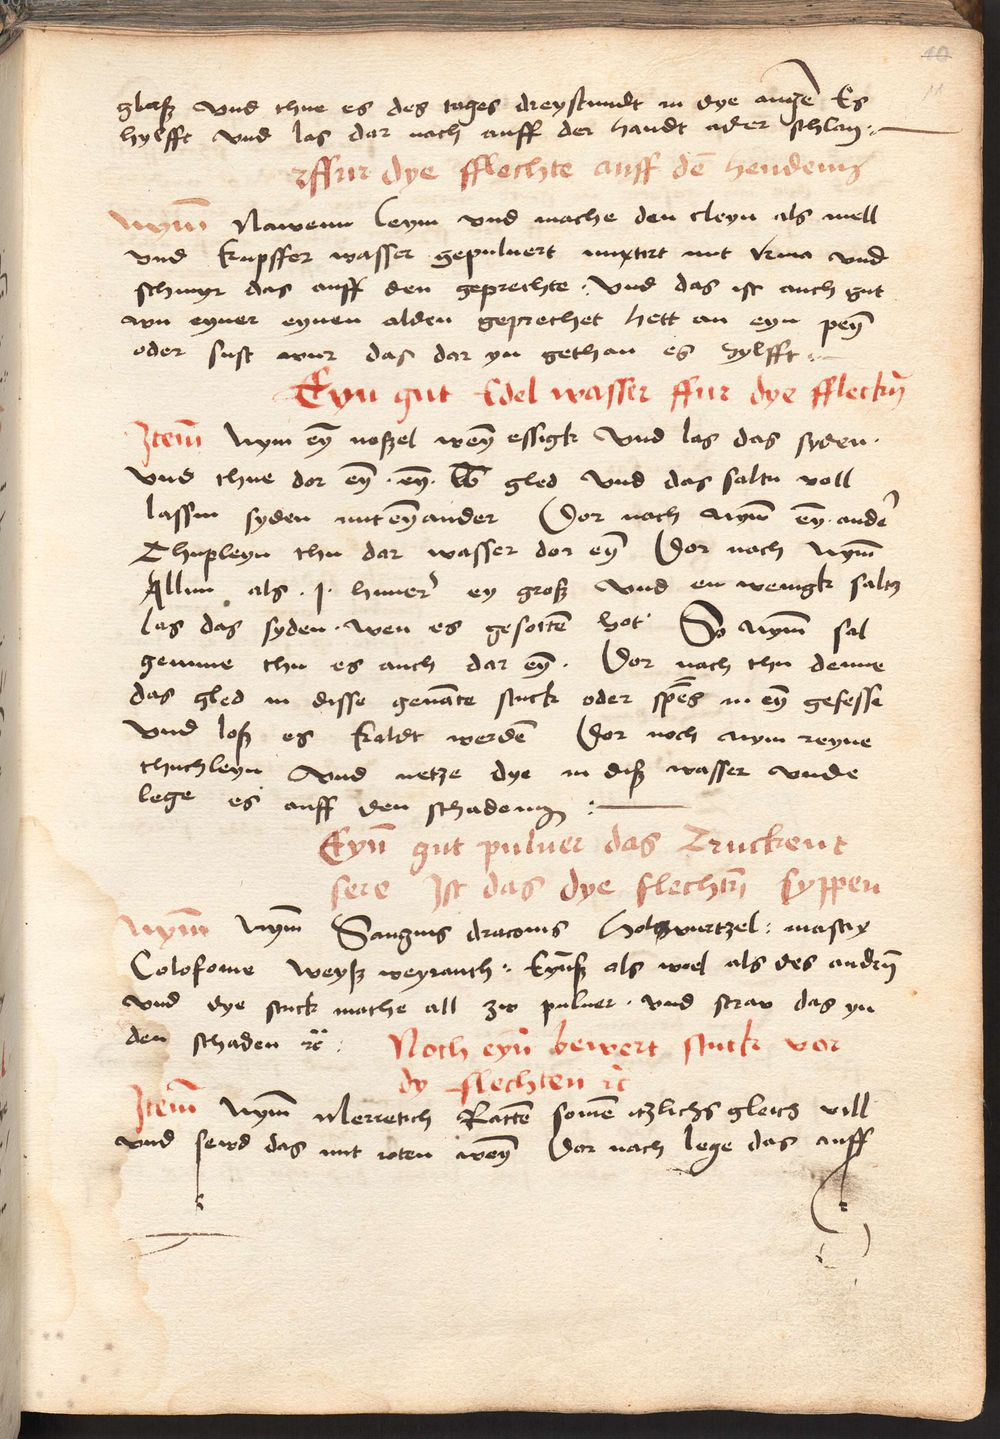 10
11
glaß vnd thue es des tages dreystundt in dye augē Es
hylfft vnd las dar nach auff der handt ader schlan
ffur dye fflechte auff dē hendenn
Nym̄ Nawenn leym vnd mache den cleyn als mell
vnd kupffer wasser gepuluert mixtirt mit vrina vnd
schmyr das auff den geprechte vnd das ist auch gut
wu eyner eynen alden geprechet hett an eyn peȳ
oder sust wur das dar yn gethan es hylfft
Eyn gut Edel wasser ffur dye fflectn̄
Item̄ Nym eȳ noßel weȳ essigk vnd las das syden
vnd thue dor eȳ eȳ gled vnd das saltu voll
lassen syden mit eȳander Dor nach nym̄ eȳ ander
thupleyn thu dar wasser dor eȳ Dor nach Nym̄
Allun als .j. huner ey groß vnd en wenigk saltz
las das syden wen es gesottē hot So nym̄ sal
gemme thu es auch dar eȳ. Dor nach thu denne
das gled in disse genāte stuck oder in eȳ gefesse
vnd loß es kaldt werdē Dor noch nym reyne
thuchleyn vnd netze dye in diß wasser vnde
lege es auff den schadenn
Eyn̄ gut puluer das Truckent
sere Ist das dye flechtn̄ syppen
Nym̄ Nym̄ Sangnis draconis holtzwurtzel: mastix
Colofonie weyß weyrauch: Eyn̄ß als viel als des andrn̄
vnd dye stuck mache all zw puluer. vnd straw das yn
den schaden rc̄:
Noch eyn̄ bewert stuck vor
dy flechten rc̄
Item̄ Nym̄ Merretich Rattē somē itzlichs gleich vill
vnd sewd das mit roten weȳ Dor nach lege das auff